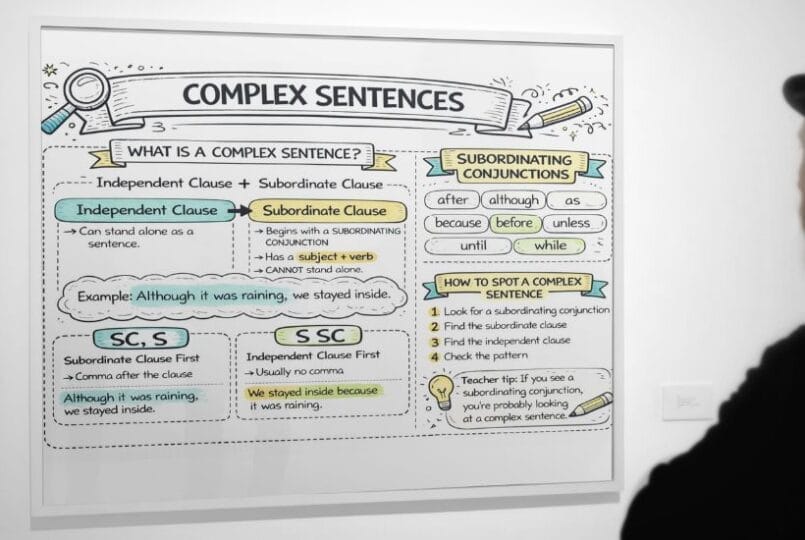 COMPLEX SENTENCES
WHAT IS A COMPLEX SENTENCE?
Independent Clause + Subordinate Clause
Independent Clause → Subordinate Clause
→ Can stand alone as a
sentence.
→ Begins with a SUBORDINATING
CONJUNCTION
→ Has a subject + verb
→ CANNOT stand alone.
Example: Although it was raining, we stayed inside.
SC, S
Subordinate Clause First
→ Comma after the clause
Although it was raining,
we stayed inside.
S SC
Independent Clause First
→ Usually no comma
We stayed inside because
it was raining.
SUBORDINATING
CONJUNCTIONS
after although as
because before unless
until while
HOW TO SPOT A COMPLEX
SENTENCE
1 Look for a subordinating conjunction
2 Find the subordinate clause
3 Find the independent clause
4 Check the pattern
Teacher tip: If you see a
subordinating conjunction,
you're probably looking
at a complex sentence.